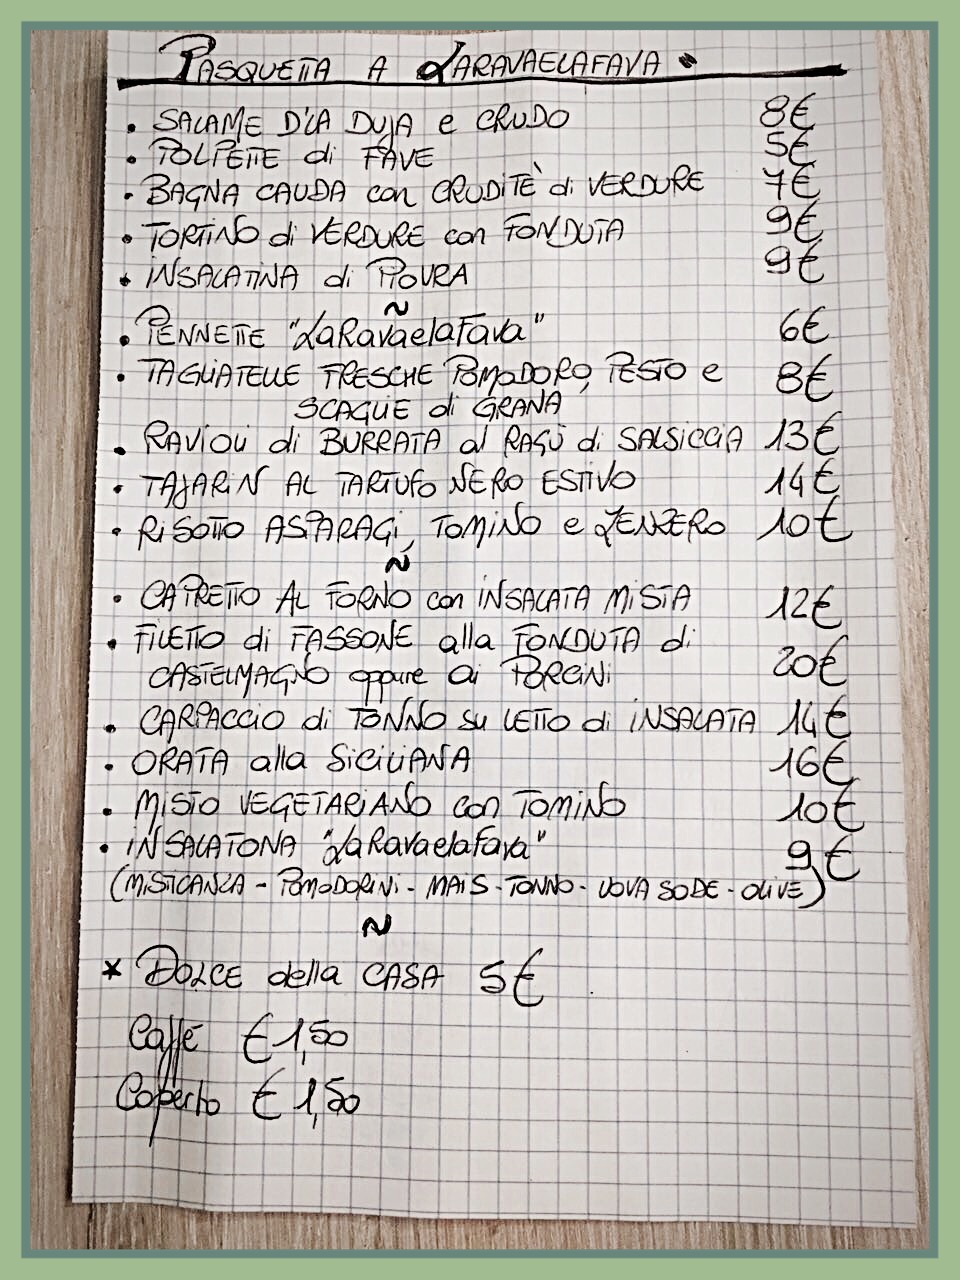 PASQUETTA A LARAVAELAFAVA
• SALAME D'LA DUJA e CRUDO 8€
• POLPETTE di FAVE 5€
• BAGNA CAUDA con CRUDITÈ di VERDURE 7€
• TORTINO di VERDURE con FONDUTA 9€
• INSALATINA di PIOVRA 9€
~
• PENNETTE "LaRavaelaFava" 6€
• TAGLIATELLE FRESCHE POMODORO, PESTO e 8€
SCAGLIE di GRANA
• RAVIOLI di BURRATA al RAGÙ di SALSICCIA 13€
• TAJARIN AL TARTUFO NERO ESTIVO 14€
• RISOTTO ASPARAGI, TOMINO e ZENZERO 10€
~
• CAPRETTO AL FORNO con INSALATA MISTA 12€
• FILETTO di FASSONE alla FONDUTA di
CASTELMAGNO oppure ai PORCINI 20€
• CARPACCIO di TONNO su LETTO di INSALATA 14€
• ORATA alla SICILIANA 16€
• MISTO VEGETARIANO con TOMINO 10€
• INSALATONA "LaRavaelaFava" 9€
(MISTICANZA - POMODORINI - MAIS - TONNO - UOVA SODE - OLIVE)
~
* DOLCE della CASA 5€
Caffè € 1,50
Coperto € 1,50